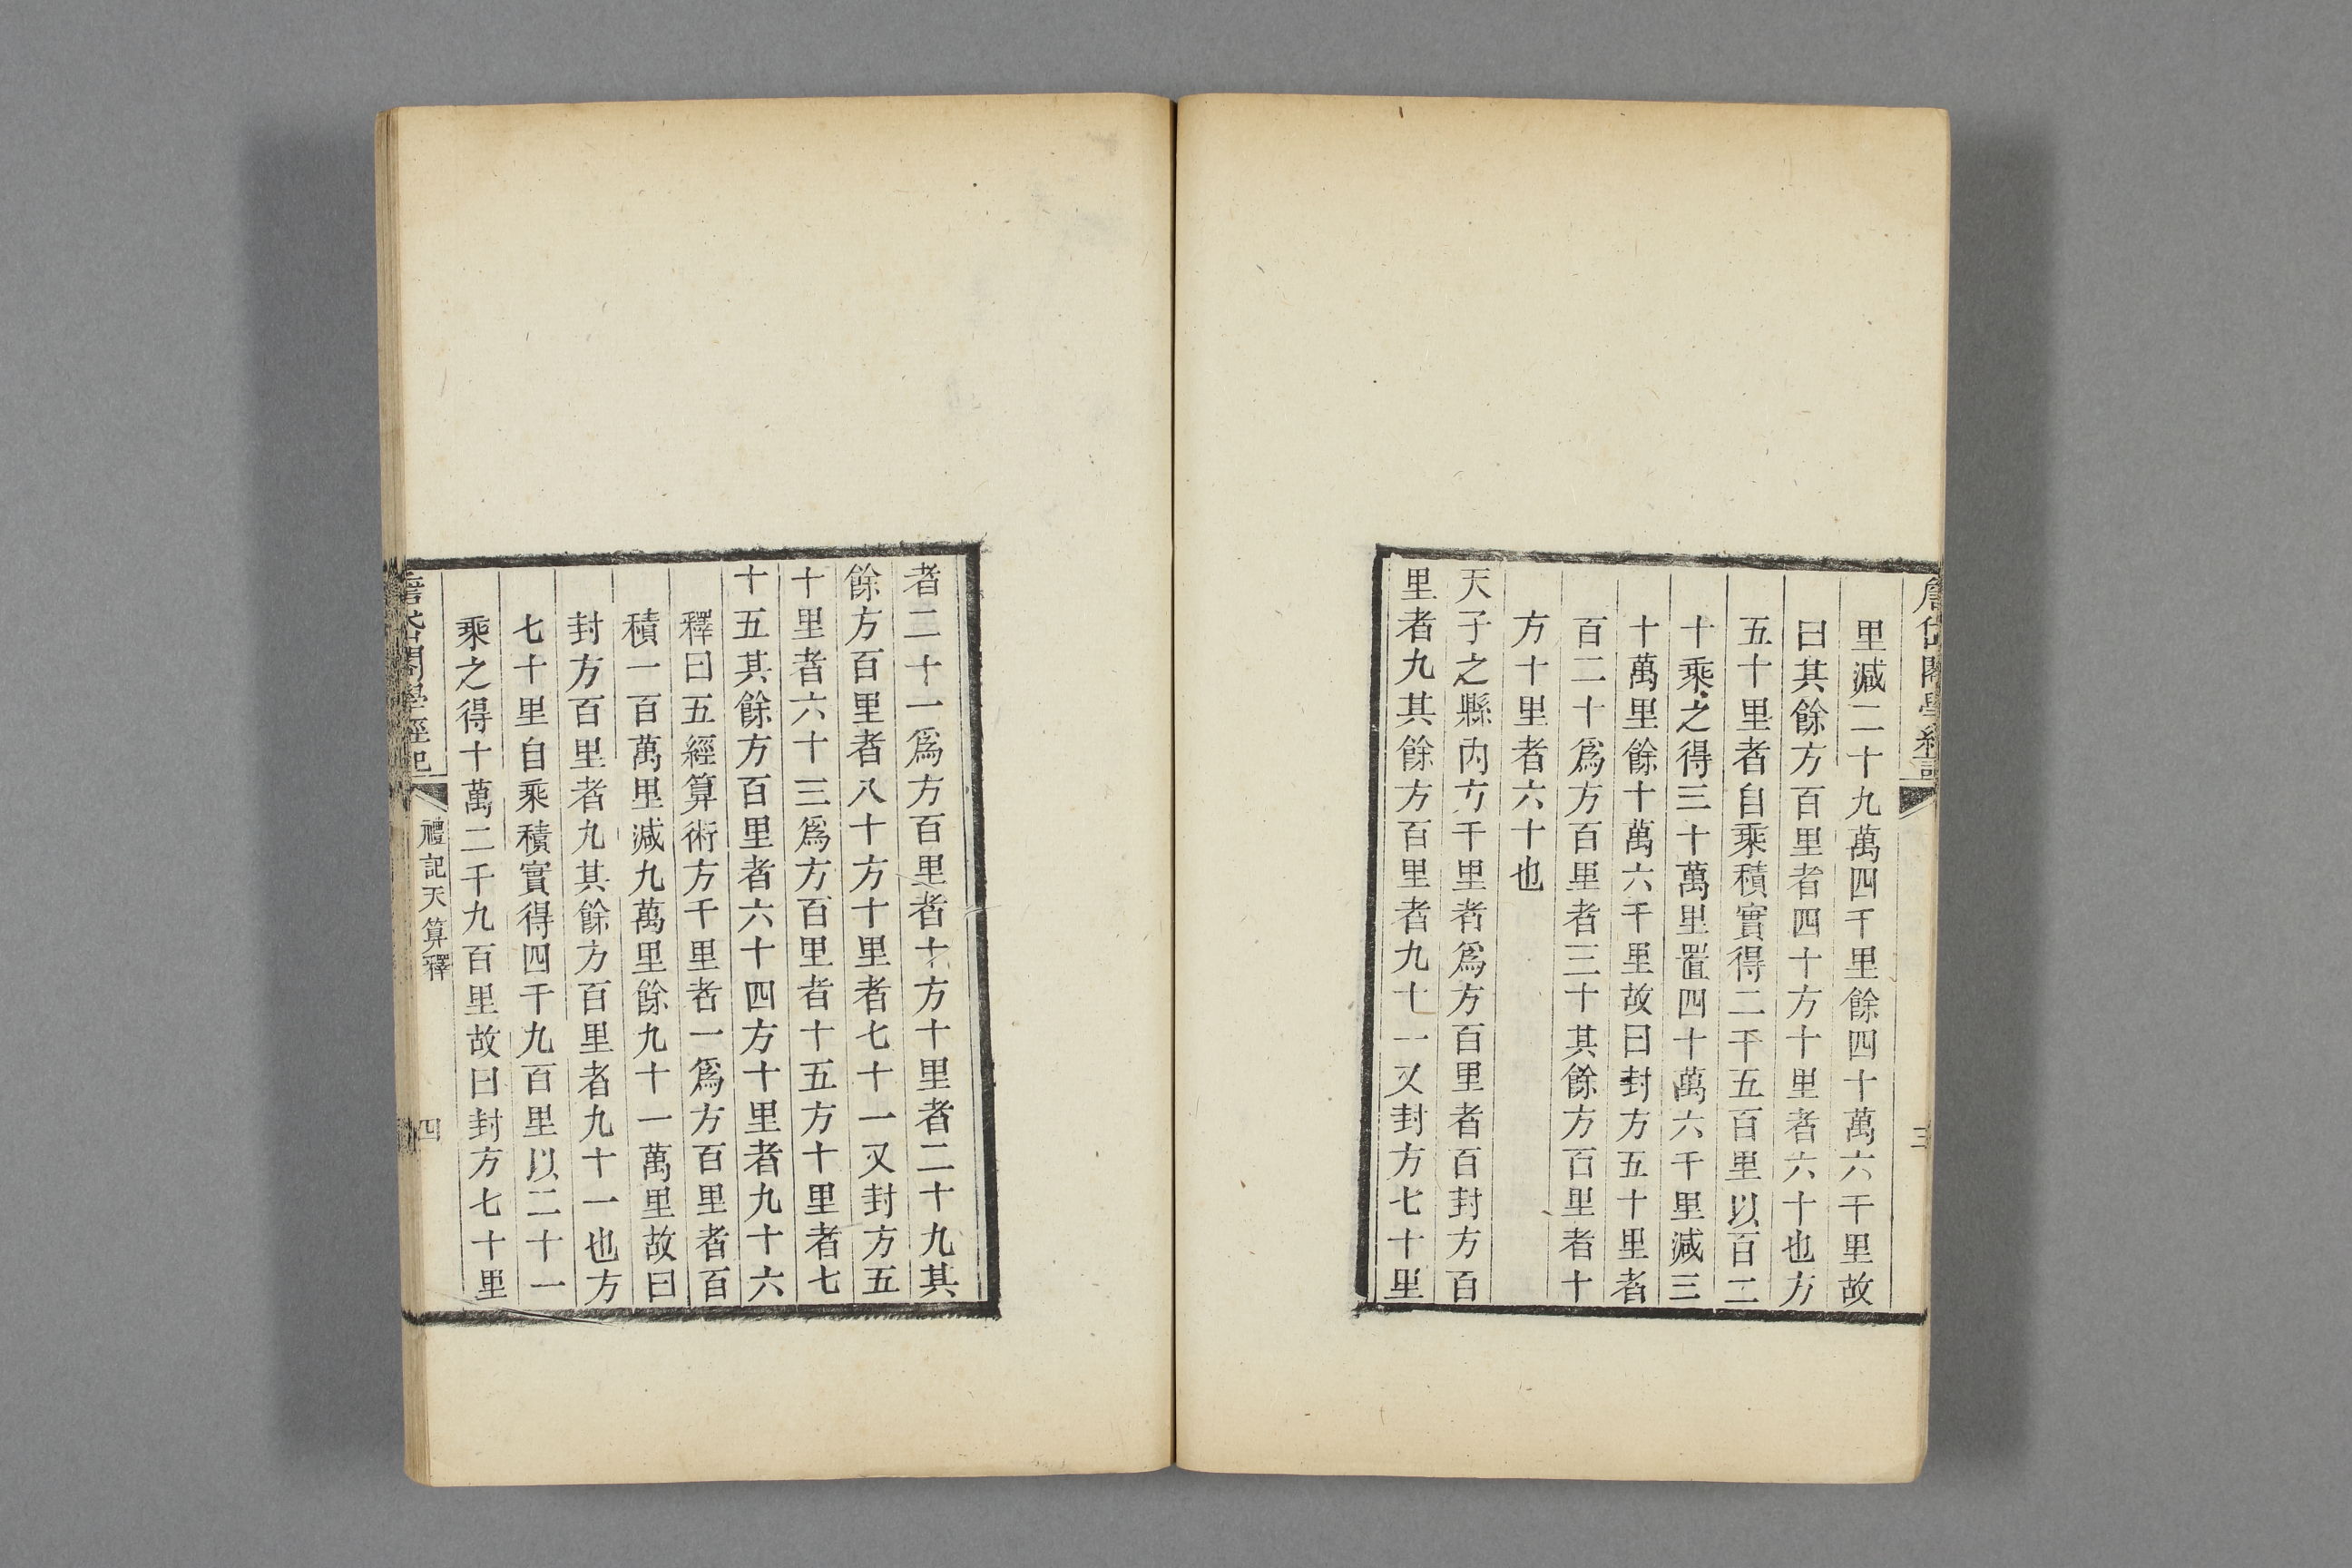 里減二十九萬四千里餘四十萬六千里故
曰其餘方百里者四十方十里者六十也方
五十里者自乘積實得二千五百里以百二
十乘之得三十萬里置四十萬六千里減三
十萬里餘十萬六千里故曰封方五十里者
百二十爲方百里者三十其餘方百里者十
方十里者六十也
天子之縣內方千里者爲方百里者百封方百
里者九其餘方百里者九十一又封方七十里
者二十一爲方百里者十方十里者二十九其
餘方百里者八十方十里者七十一又封方五
十里者六十三爲方百里者十五方十里者七
十五其餘方百里者六十四方十里者九十六
釋曰五經算術方千里者一爲方百里者百
積一百萬里減九萬里餘九十一萬里故曰
封方百里者九其餘方百里者九十一也方
七十里自乘積實得四千九百里以二十一
乘之得十萬二千九百里故曰封方七十里
禮記天算釋
四